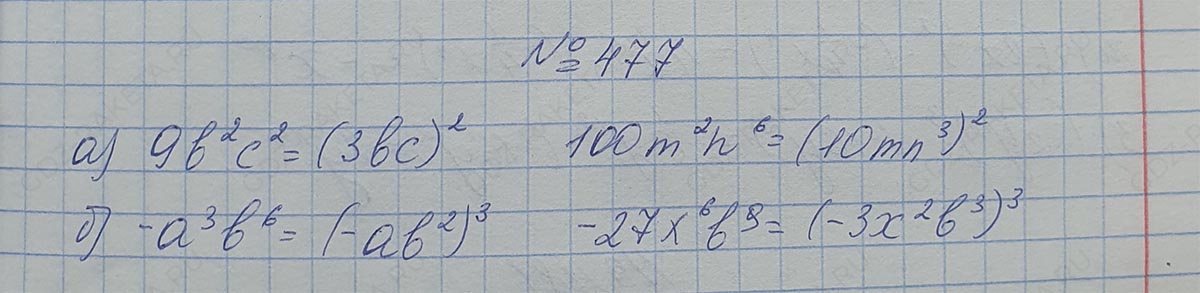 № 477
а) 9b²c² = (3bc)² 100m²n⁶ = (10mn³)²
б) -a³b⁶ = (-ab²)³ -27x⁶b⁹ = (-3x²b³)³